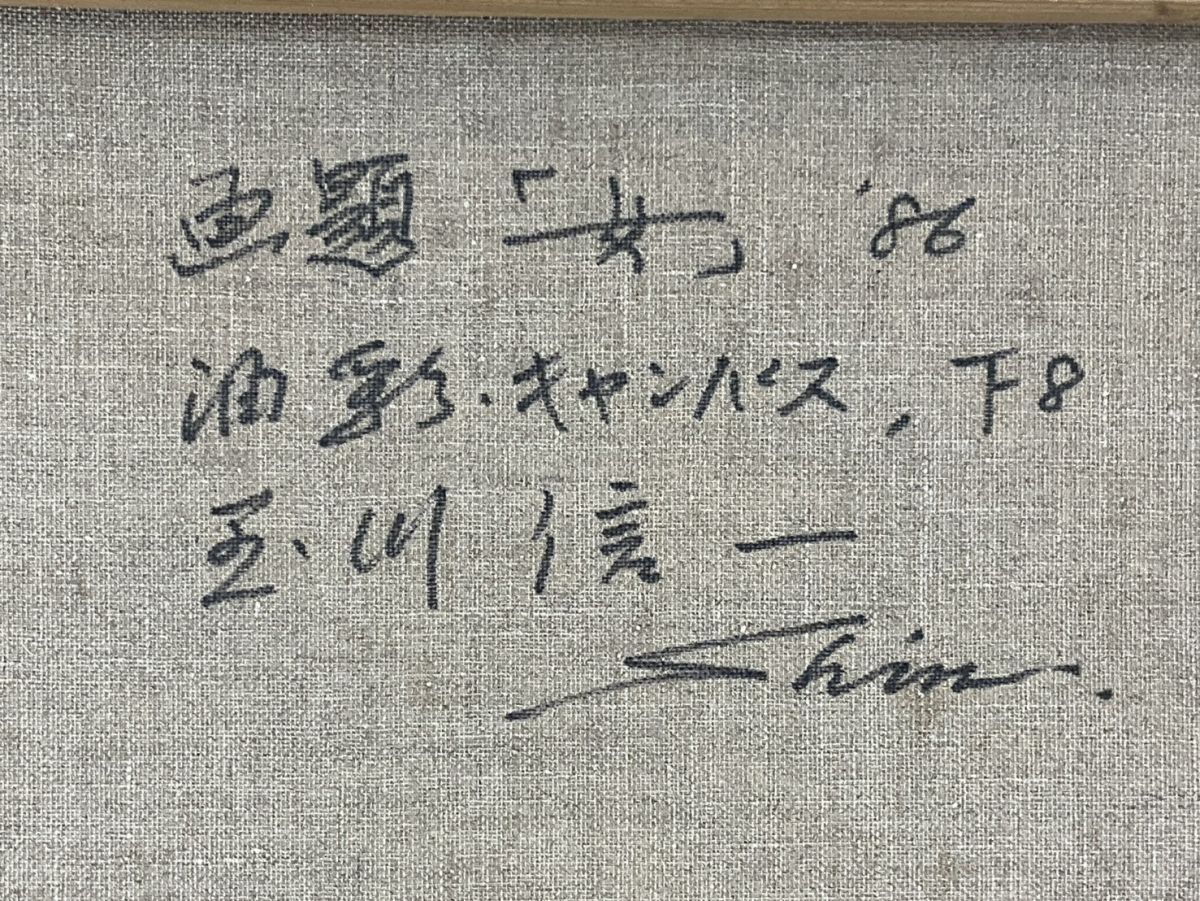 画題 「女」 '86
油彩・キャンバス, F8
玉川信一
Shin.